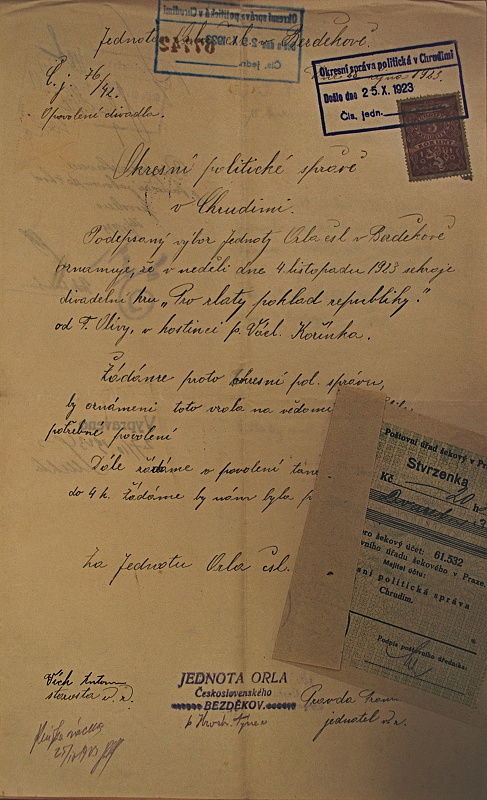 Okresní správa politická v Chrudimi
Došlo dne 25.X.1923
Čís. jedn.
Jednota v Bezděkově.
Č. j. 76/42.
O povolení divadla.
Okresní politické správě
v Chrudimi.
Podepsaný výbor Jednoty Orla čsl v Bezděkově
oznamuje, že v neděli dne 4 listopadu 1923 sehraje
divadelní hru „Pro zlatý poklad republiky."
od F. Olivy, v hostinci p. Václ. Kořínka.
Žádáme proto okresní pol. správu,
by oznámení toto vzala na vědomí
potřebné povolení
Dále žádáme o povolení
do 4 h. žádáme by nám byla
Za Jednotu Orla čsl.
Poštovní úřad šekový v Pr
Stvrzenka
Kč 20 h
ro šekový účet: 61.532
vního úřadu šekového v Praze.
Majitel účtu:
sní politická správa
Chrudim.
Podpis poštovního úředníka:
starosta
JEDNOTA ORLA
Československého
BEZDĚKOV.
Pravda
jednatel